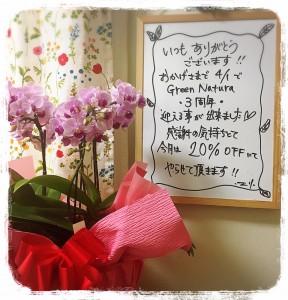 いつも ありがとう
ございます!!
おかげさまで 4/1で
Green Natura
・3周年・
迎える事が出来ました♡
感謝の気持ちとして
今月は 20% OFFにて
やらせて頂きます!!